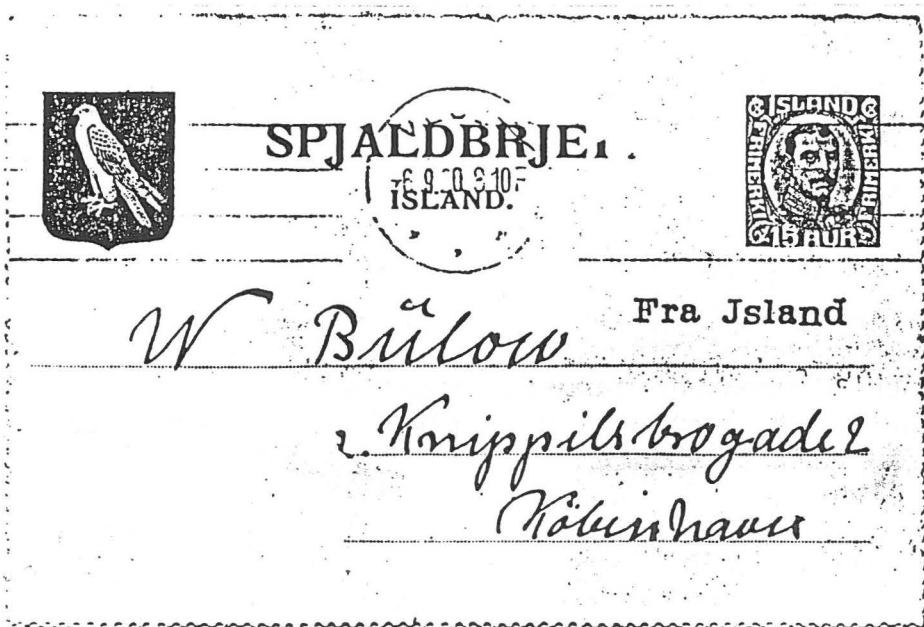 SPJALDBRJEF.
ISLAND.
ISLAND
FRIMERKI
FRIMERKI
15 AUR
Fra Jsland
W Bülow
2. Knippilsbrogade 2
Köbinhavn